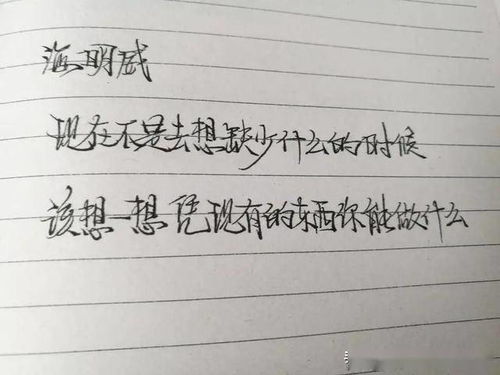 海明威
现在不是去想缺少什么的时候
该想一想凭现有的东西你能做什么